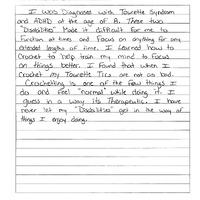 I was Diagnosed with Tourette Syndrom
and ADHD at the age of 8. These two
"Disabilities" Made it difficult for me to
function at times and Focus on anything for any
extended lengths of time. I learned how to
Crochet to help train my mind to Focus
on things better. I Found that when I
Crochet my Tourette Tics are not as bad.
Crocheting is one of the few things I
do and Feel "normal" while doing it. I
guess in a way its Therapeutic. I have
never let my "Disabilities" get in the way of
things I enjoy doing.